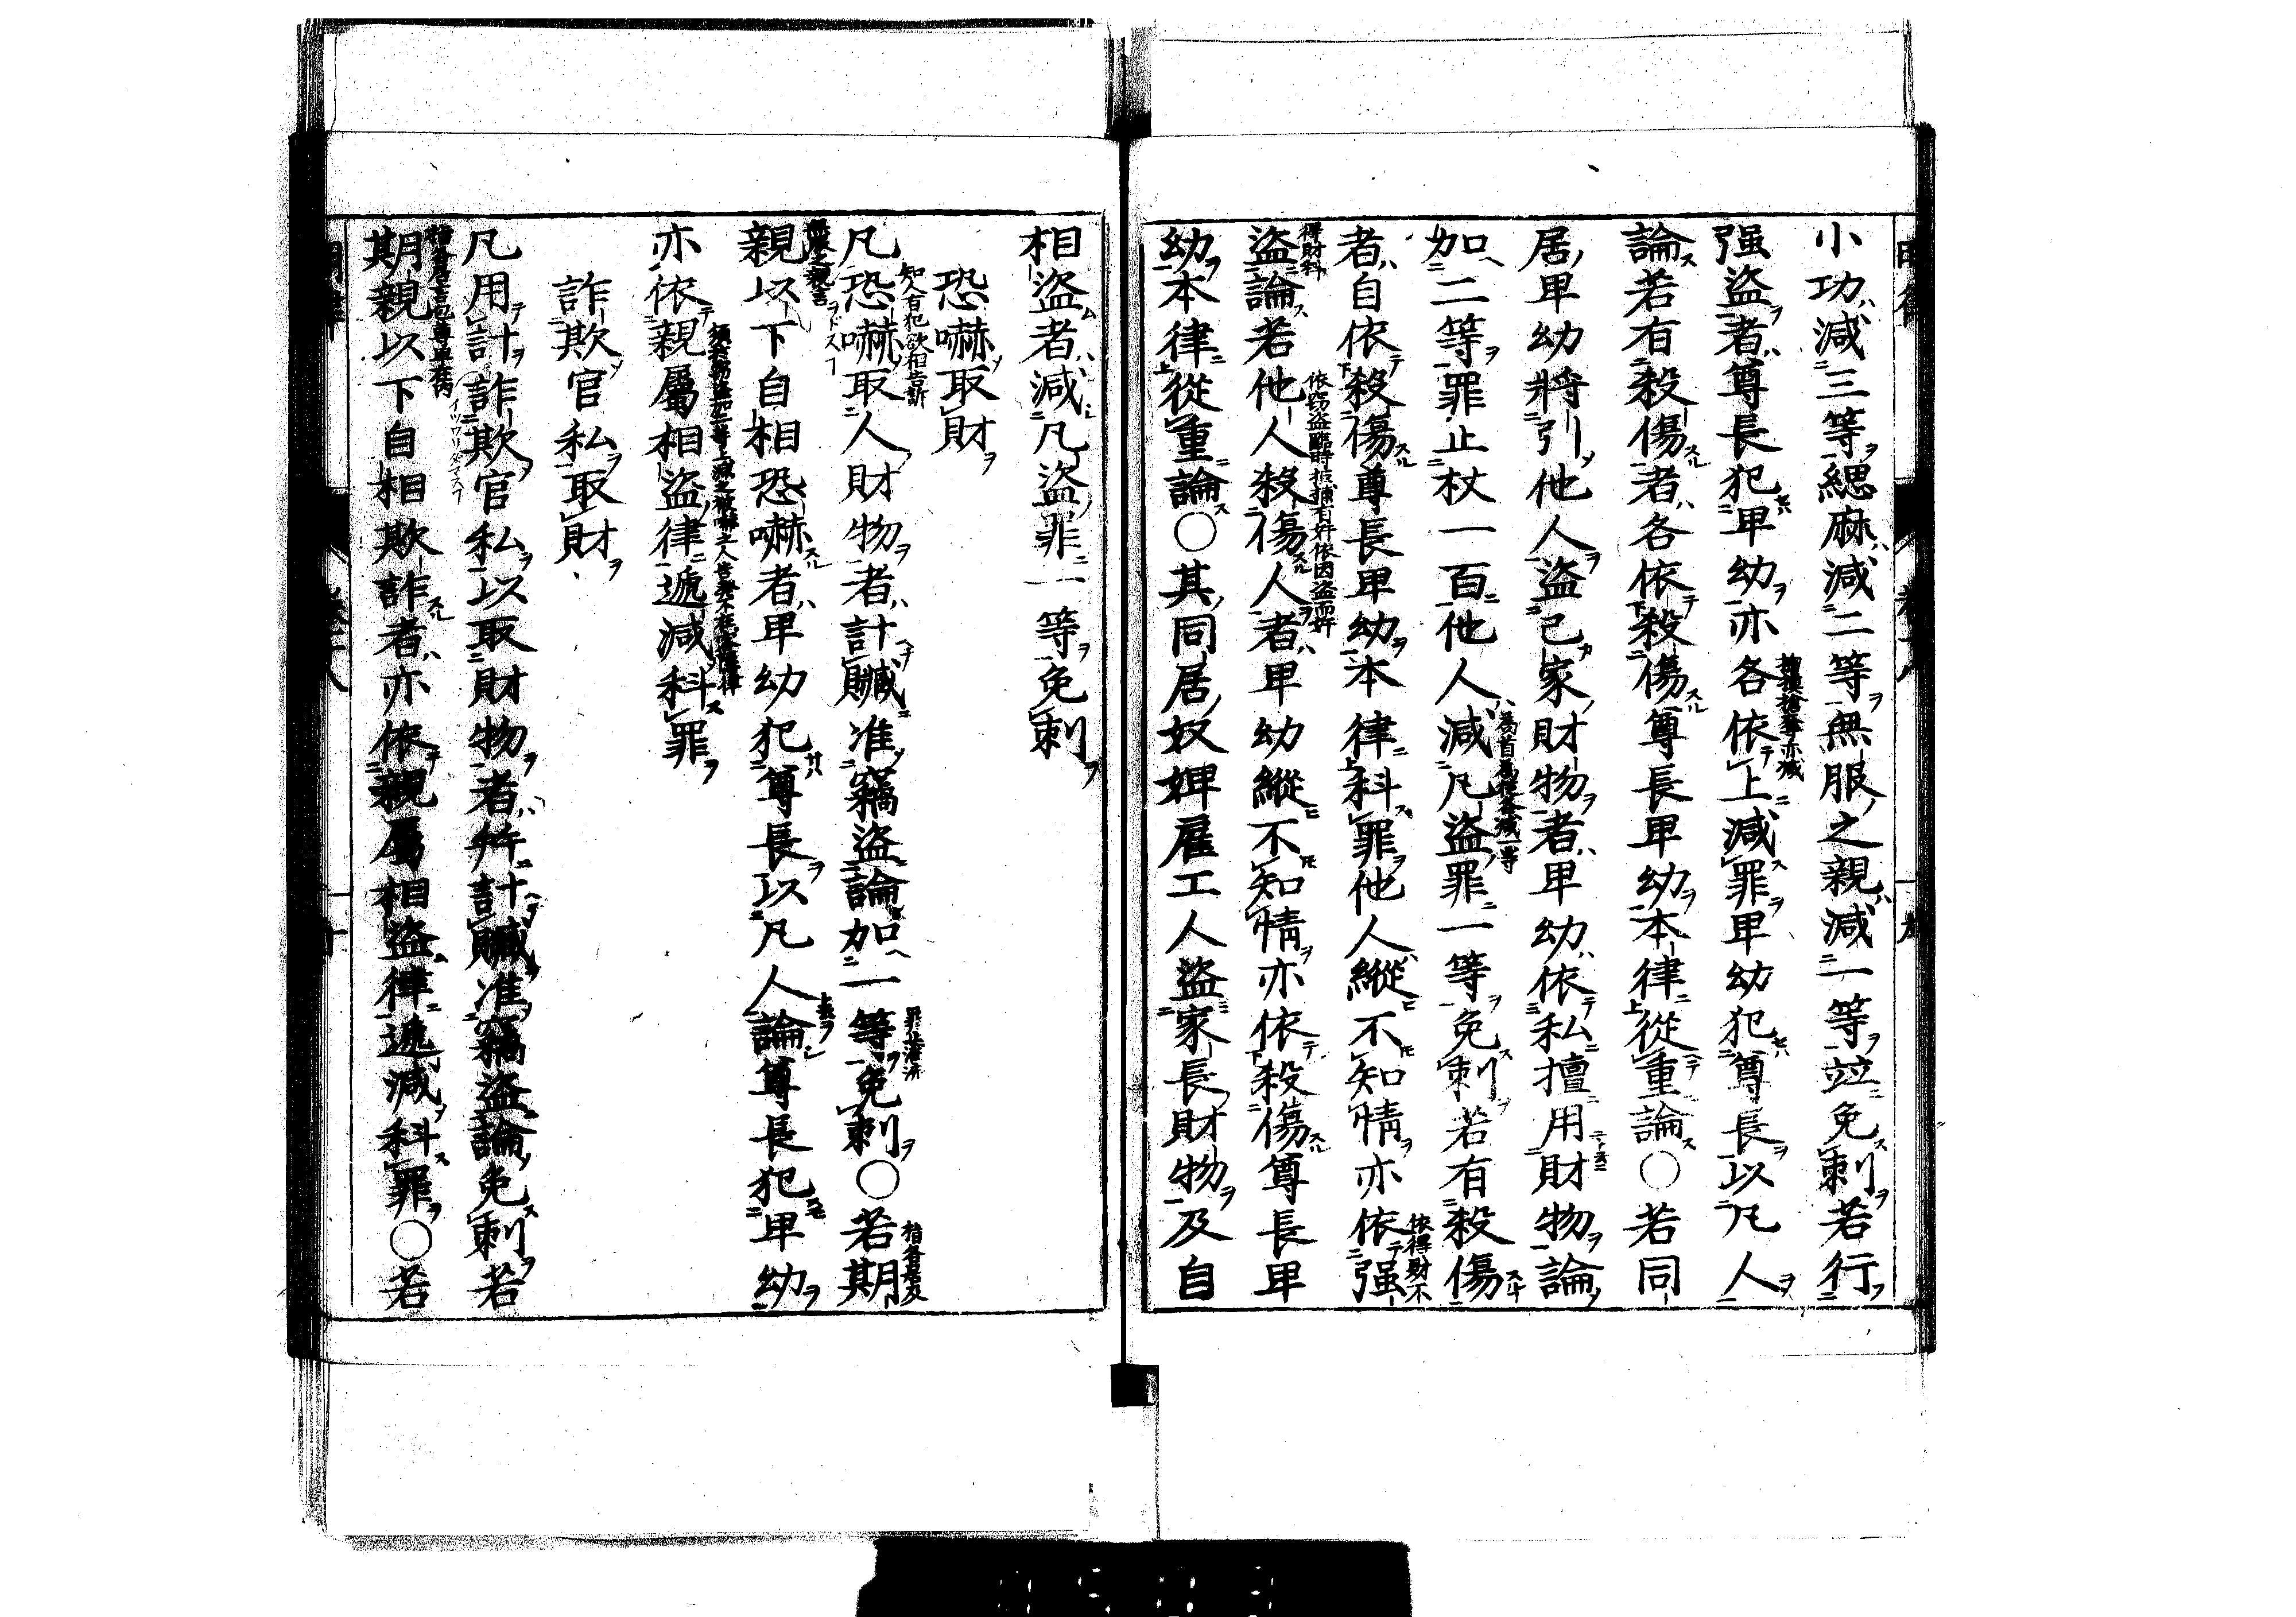 小功減三等緦麻減二等無服之親減一等並免刺若行
强盜者尊長犯卑幼亦各依上減罪卑幼犯尊長以凡人
論若有殺傷者各依殺傷尊長卑幼本律從重論○若同
居卑幼將引他人盜己家財物者卑幼依私擅用財物論
加二等罪止杖一百他人減凡盜罪一等免刺若有殺傷
爲首爲從各減一等
者自依殺傷尊長卑幼本律科罪他人縱不知情亦依强
依得財不
得財科
盜論若他人殺傷人者卑幼縱不知情亦依殺傷尊長卑
依竊盜臨時拒捕有奸依因盜而奸
幼本律從重論○其同居奴婢雇工人盜家長財物及自
相盜者減凡盜罪一等免刺
恐嚇取財
知人有犯欲相告訴
凡恐嚇取人財物者計贓准竊盜論加一等免刺○若期
親以下自相恐嚇者卑幼犯尊長以凡人論尊長犯卑幼
亦依親屬相盜律遞減科罪
詐欺官私取財
凡用計詐欺官私以取財物者並計贓准竊盜論免刺若
イツワリダマスヿ
期親以下自相欺詐者亦依親屬相盜律遞減科罪○若